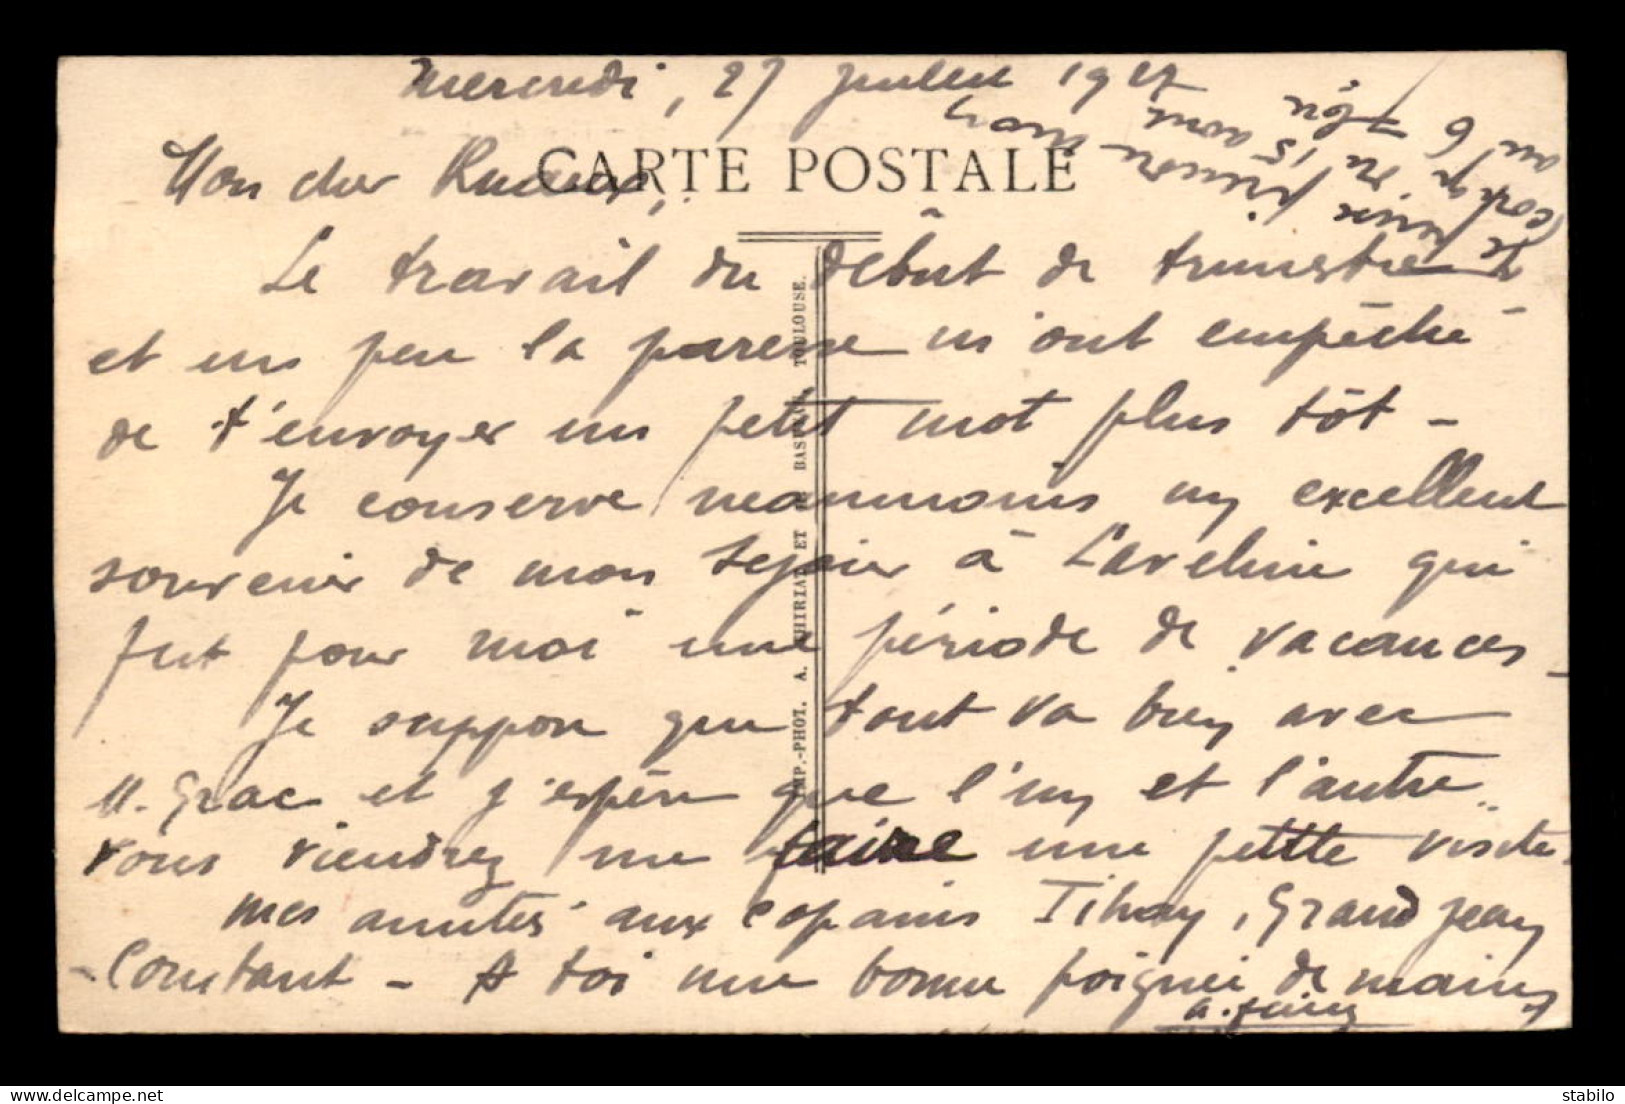 Mercredi, 27 juillet 1927
CARTE POSTALE
Mon cher
Le travail du début de trimestre
et un peu la paresse m'ont empêché
de t'envoyer un petit mot plus tôt -
Je conserve neanmoins un excellent
souvenir de mon sejour à Laveline qui
fut pour moi une période de vacances -
Je suppose que tout va bien avec
M. Grac et j'espère que l'un et l'autre
vous viendrez me faire une petite visite.
mes amitiés aux copains Tihay, Grandjean
Constant - A toi une bonne poignée de mains
Je
congé du 15 aout
au 6
IMP.-PHOT. A. THIRIAT ET BASUYAU, TOULOUSE.
delcampe.net
stabilo